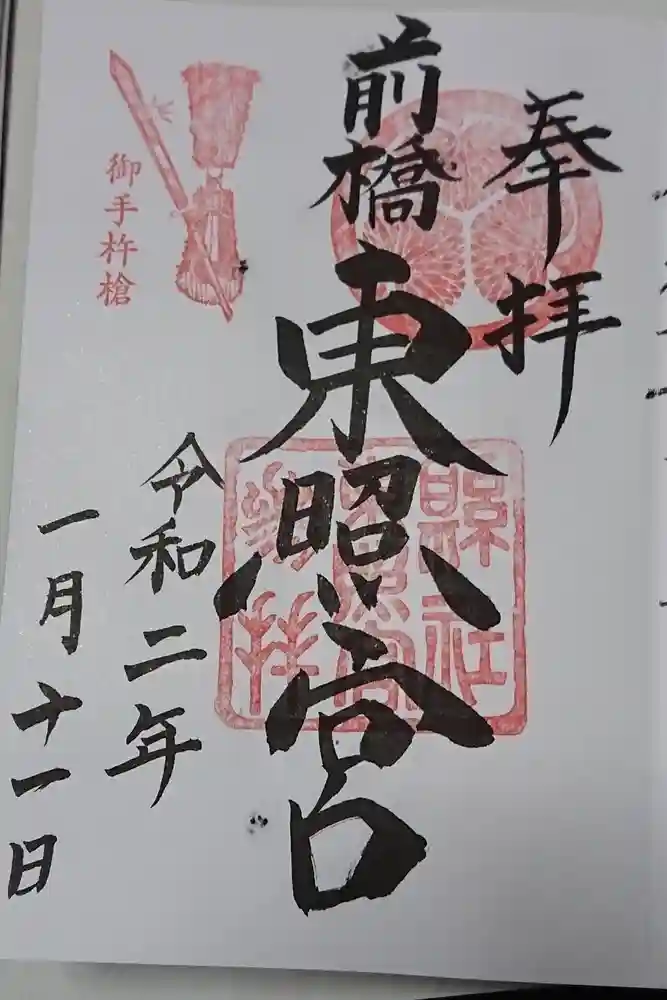 奉拝
前橋東照宮
縣社
東照宮
令和二年
一月十一日
御手杵槍